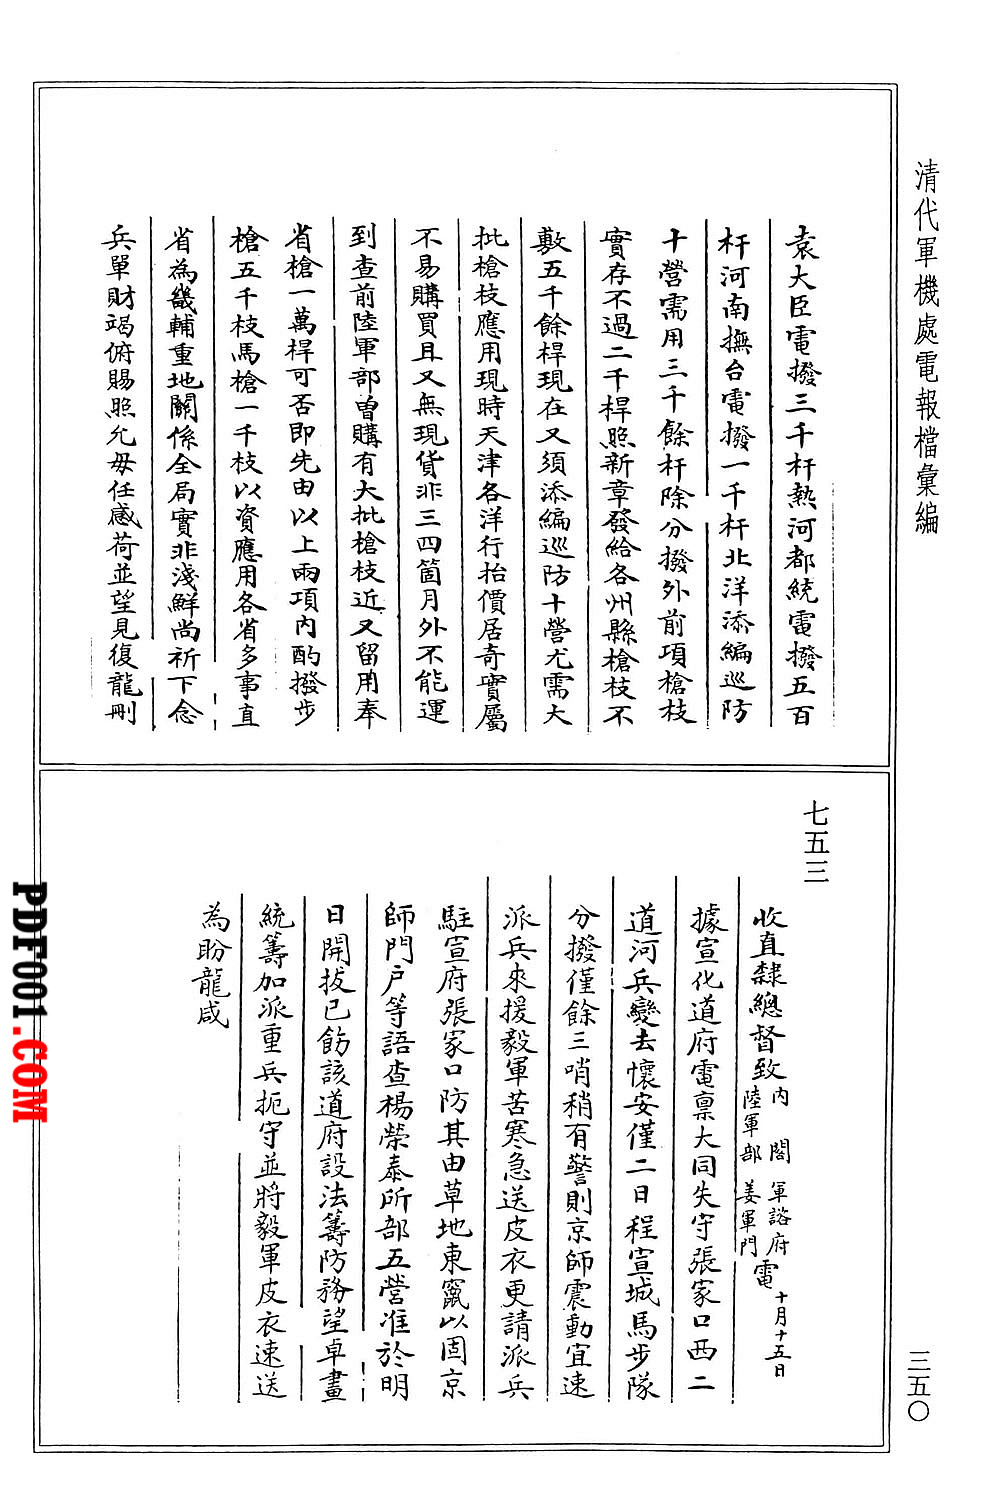 清代軍機處電報檔彙編
三五〇
袁大臣電撥三千杆熱河都統電撥五百
杆河南撫台電撥一千杆北洋添編巡防
十營需用三千餘杆除分撥外前項槍枝
實存不過二千桿照新章發給各州縣槍枝不
敷五千餘桿現在又須添編巡防十營尤需大
批槍枝應用現時天津各洋行抬價居奇實屬
不易購買且又無現貨非三四箇月外不能運
到查前陸軍部曾購有大批槍枝近又留用奉
省槍一萬桿可否即先由以上兩項內酌撥步
槍五千枝馬槍一千枝以資應用各省多事直
省為畿輔重地關係全局實非淺鮮尚祈下念
兵單財竭俯賜照允毋任感荷並望見復龍刪
七五三
收直隸總督致內閣軍諮府陸軍部姜軍門電十月十五日
據宣化道府電禀大同失守張家口西二
道河兵變去懷安僅二日程宣城馬步隊
分撥僅餘三哨稍有警則京師震動宜速
派兵來援毅軍苦寒急送皮衣更請派兵
駐宣府張家口防其由草地東竄以固京
師門户等語查楊榮泰所部五營准於明
日開拔已飭該道府設法籌防務望卓畫
統籌加派重兵扼守並將毅軍皮衣速送
為盼龍咸
PDF001.COM